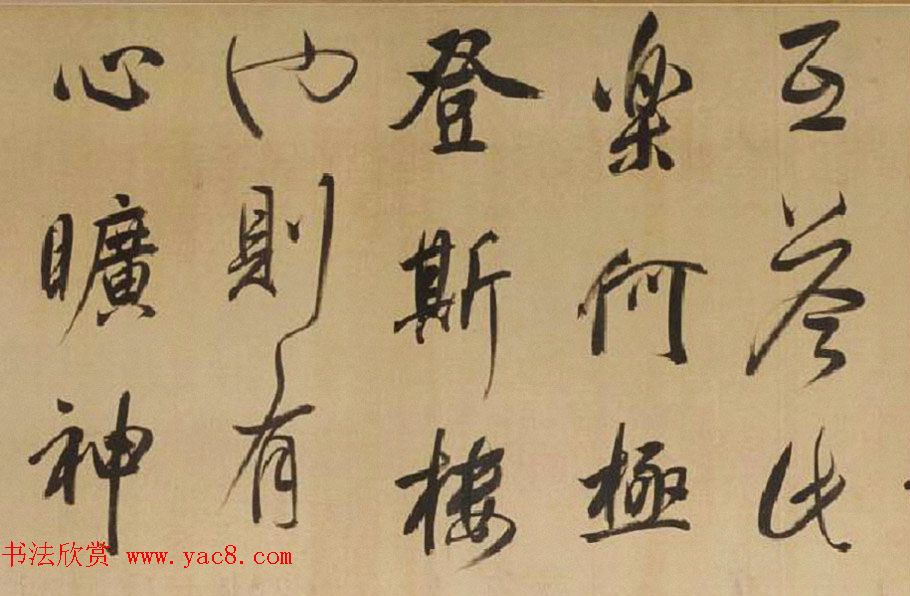 互答此
樂何極
登斯樓
也則有
心曠神
书法欣赏 www.yac8.com